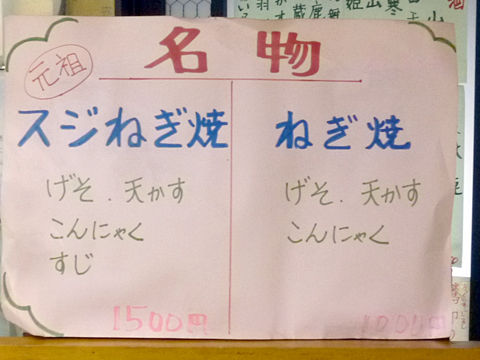 元祖
名物
スジねぎ焼
げそ．天かす
こんにゃく
すじ
1500円
ねぎ焼
げそ．天かす
こんにゃく
1000円